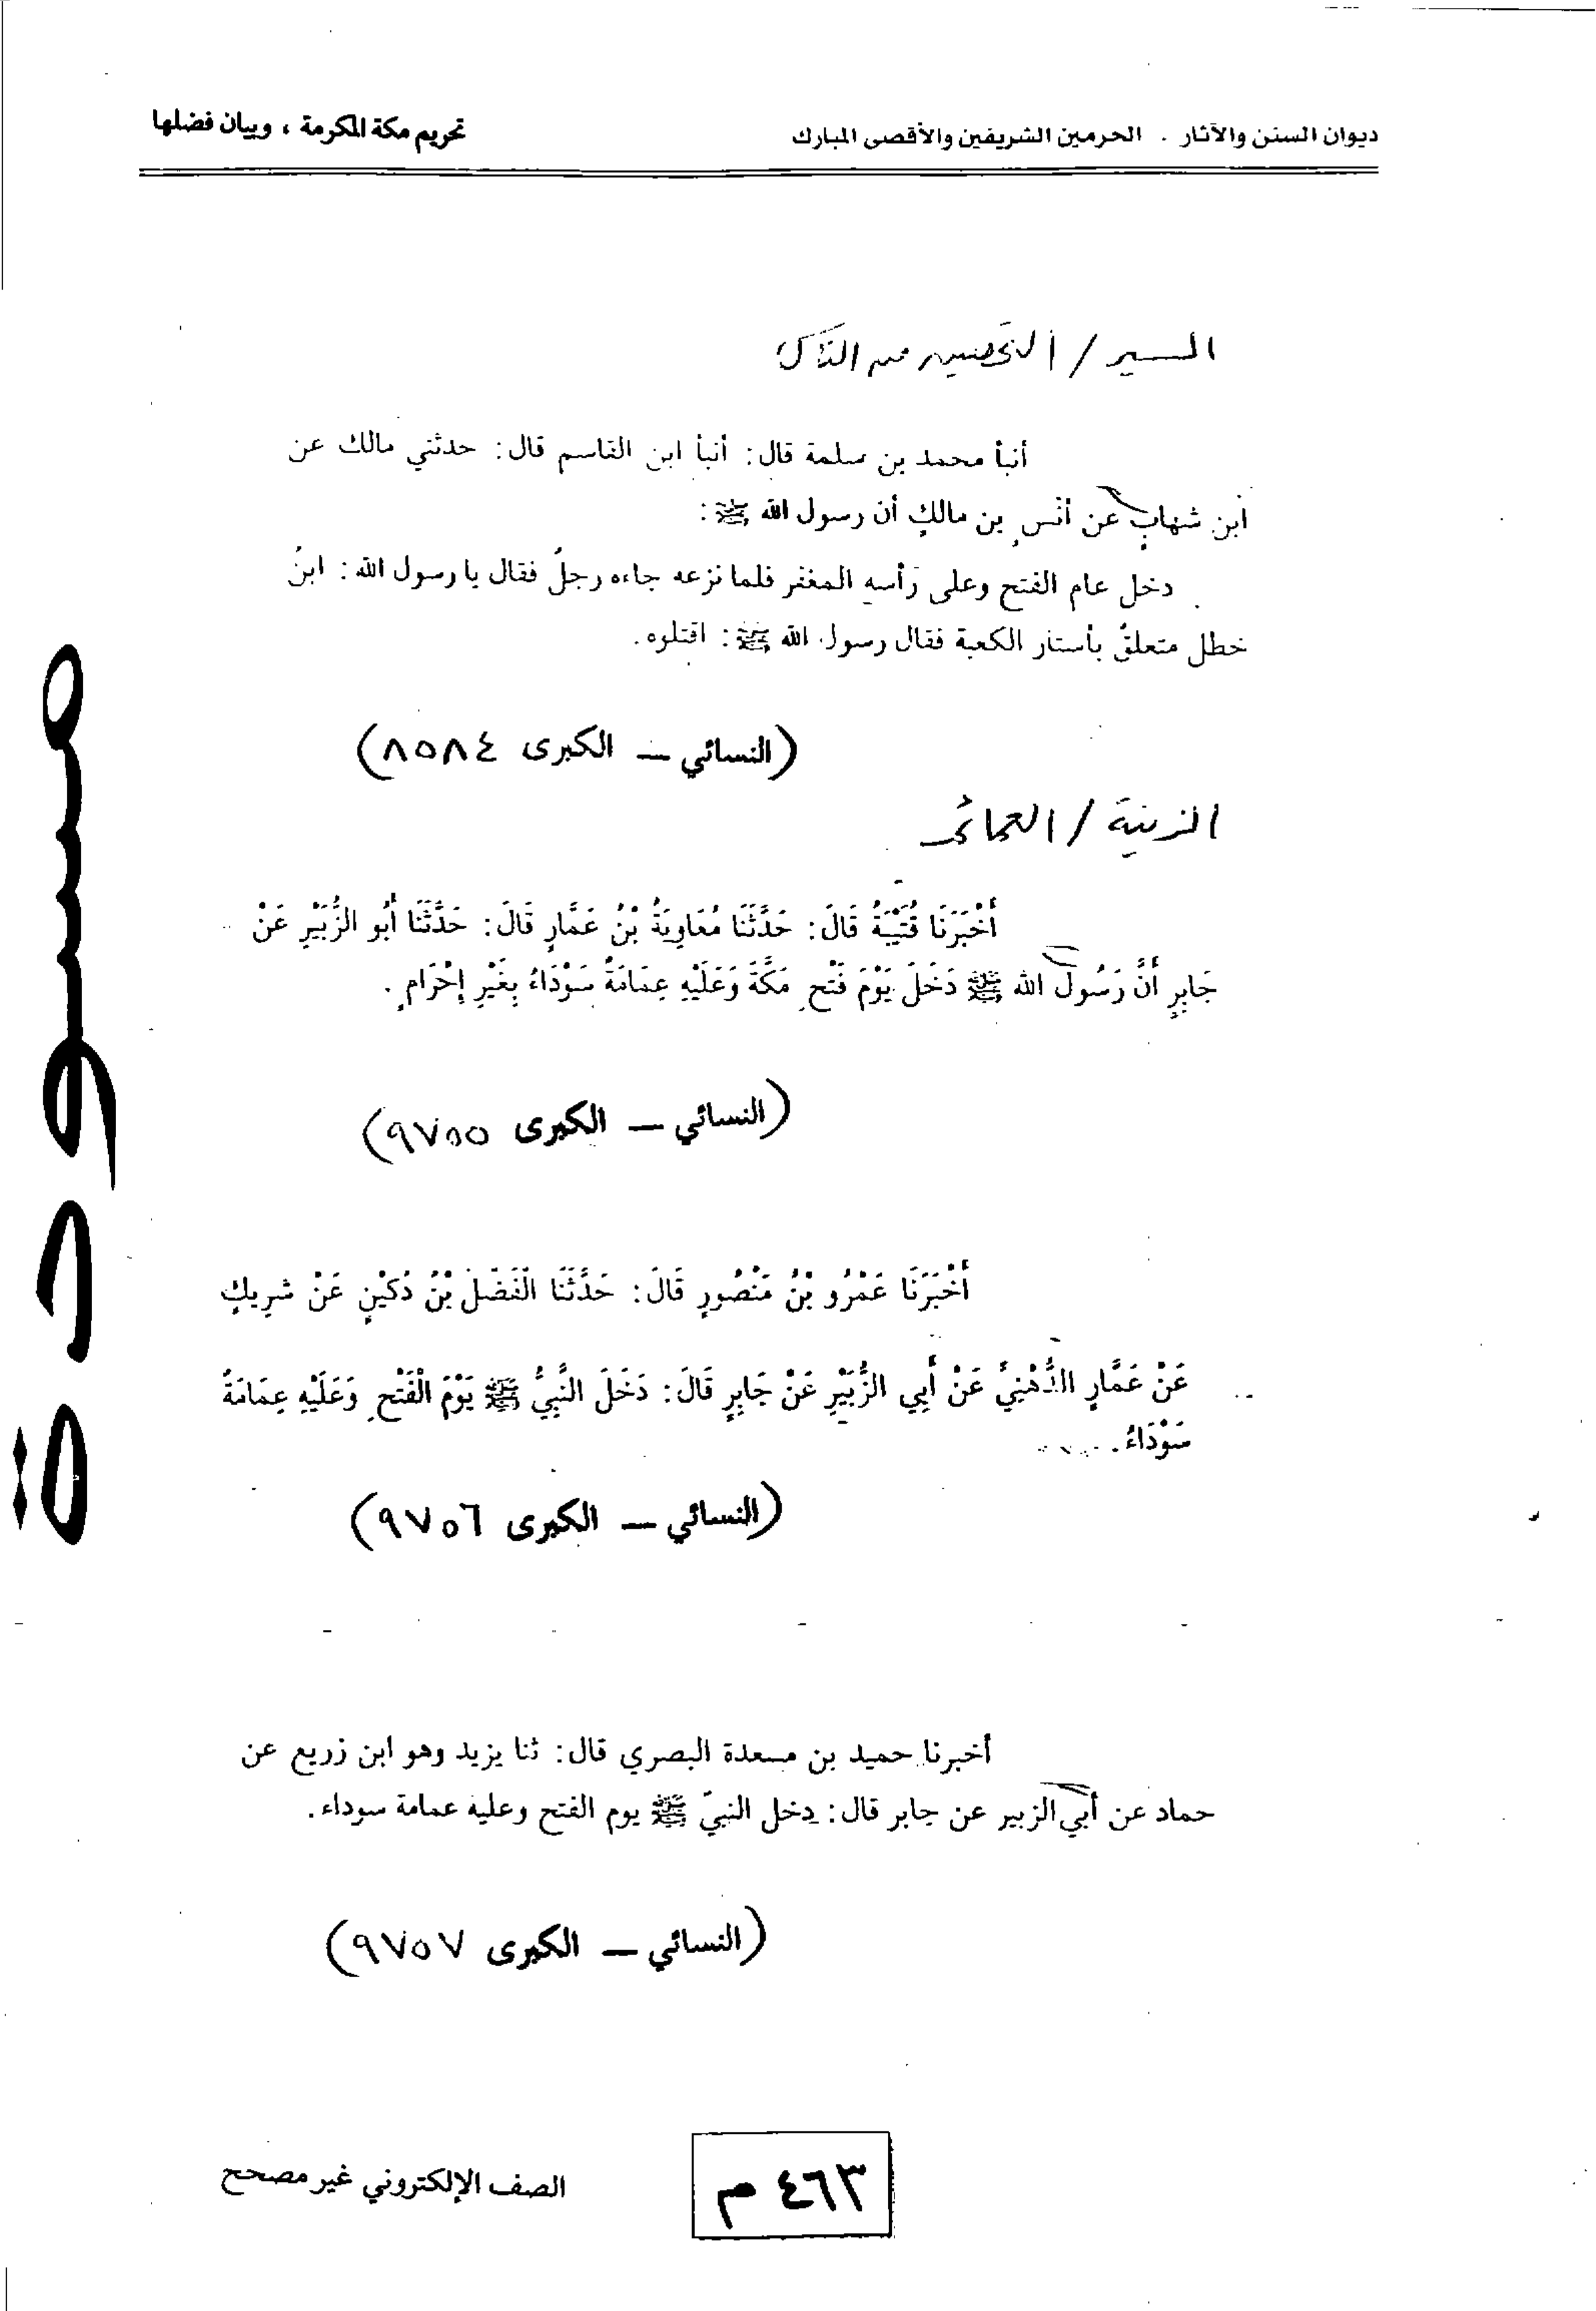 ديوان السنن والآثار . الحرمين الشريفين والأقصى المبارك
تحريم مكة المكرمة ، وبيان فضلها
السير / التحصين من الناس
أنبأ محمد بن سلمة قال: أنبأ ابن القاسم قال: حدثني مالك عن
ابن شهابٍ عن أنسِ بن مالكٍ أن رسول الله ﷺ:
دخل عام الفتح وعلى رأسه المغفر فلما نزعه جاءه رجلٌ فقال يا رسول الله: ابنُ
خطل متعلقٌ بأستار الكعبة فقال رسول الله ﷺ: اقتلوه.
(النسائي – الكبرى ٨٥٨٤)
الزينة / العمائم
أَخْبَرَنَا قُتَيْبَةُ قَالَ: حَدَّثَنَا مُعَاوِيَةُ بْنُ عَمَّارٍ قَالَ: حَدَّثَنَا أَبُو الزُّبَيْرِ عَنْ
جَابِرٍ أَنَّ رَسُولَ الله ﷺ دَخَلَ يَوْمَ فَتْحِ مَكَّةَ وَعَلَيْهِ عِمَامَةٌ سَوْدَاءُ بِغَيْرِ إِحْرَامٍ.
(النسائي – الكبرى ٩٧٥٥)
أَخْبَرَنَا عَمْرُو بْنُ مَنْصُورٍ قَالَ: حَدَّثَنَا الْفَضْلُ بْنُ دُكَيْنٍ عَنْ شَرِيكٍ
عَنْ عَمَّارٍ الدُّهْنِيِّ عَنْ أَبِي الزُّبَيْرِ عَنْ جَابِرٍ قَالَ: دَخَلَ النَّبِيُّ ﷺ يَوْمَ الْفَتْحِ وَعَلَيْهِ عِمَامَةٌ
سَوْدَاءُ.
(النسائي – الكبرى ٩٧٥٦)
أخبرنا حميد بن مسعدة البصري قال: ثنا يزيد وهو ابن زريع عن
حماد عن أبي الزبير عن جابر قال: دخل النبيّ ﷺ يوم الفتح وعليه عمامة سوداء.
(النسائي – الكبرى ٩٧٥٧)
٤٦٣ م
الصف الإلكتروني غير مصحح
مسودة